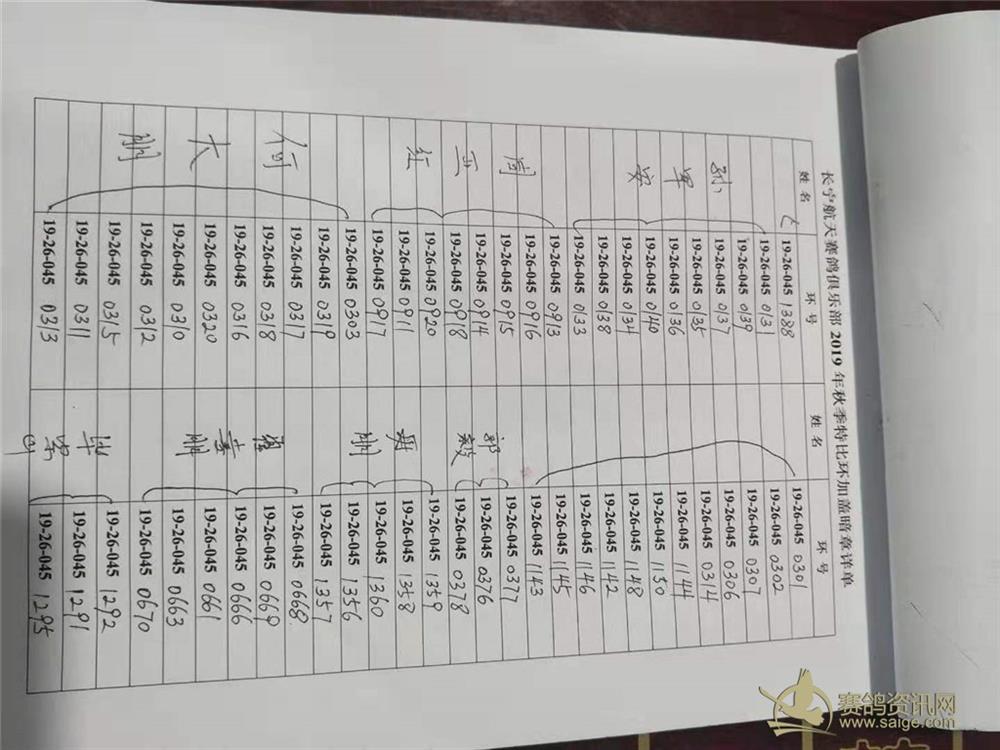 长宁航天赛鸽俱乐部 2019 年秋季特比环加盖暗章详单
姓名 环号 姓名 环号
19-26-045 1388 19-26-045 0301
19-26-045 0131 19-26-045 0302
19-26-045 0139 19-26-045 0307
19-26-045 0137 19-26-045 0306
军 19-26-045 0135 19-26-045 0314
19-26-045 0136 19-26-045 1144
安 19-26-045 0140 19-26-045 1150
19-26-045 0134 19-26-045 1148
19-26-045 0138 19-26-045 1142
19-26-045 0133 19-26-045 1146
19-26-045 0913 19-26-045 1145
周 19-26-045 0916 19-26-045 1143
19-26-045 0915 郭 19-26-045 0377
亚 19-26-045 0914 毅 19-26-045 0376
19-26-045 0918 19-26-045 0378
红 19-26-045 0920 19-26-045 1359
19-26-045 0911 19-26-045 1358
19-26-045 0917 刚 19-26-045 1360
19-26-045 0303 19-26-045 1356
19-26-045 0319 19-26-045 1357
何 19-26-045 0317 19-26-045 0668
19-26-045 0318 19-26-045 0669
大 19-26-045 0316 19-26-045 0666
19-26-045 0320 刚 19-26-045 0661
刚 19-26-045 0310 19-26-045 0663
19-26-045 0312 19-26-045 0670
19-26-045 0315 19-26-045 1292
19-26-045 0311 19-26-045 1291
19-26-045 0313 19-26-045 1295
赛鸽资讯网
www.saige.com